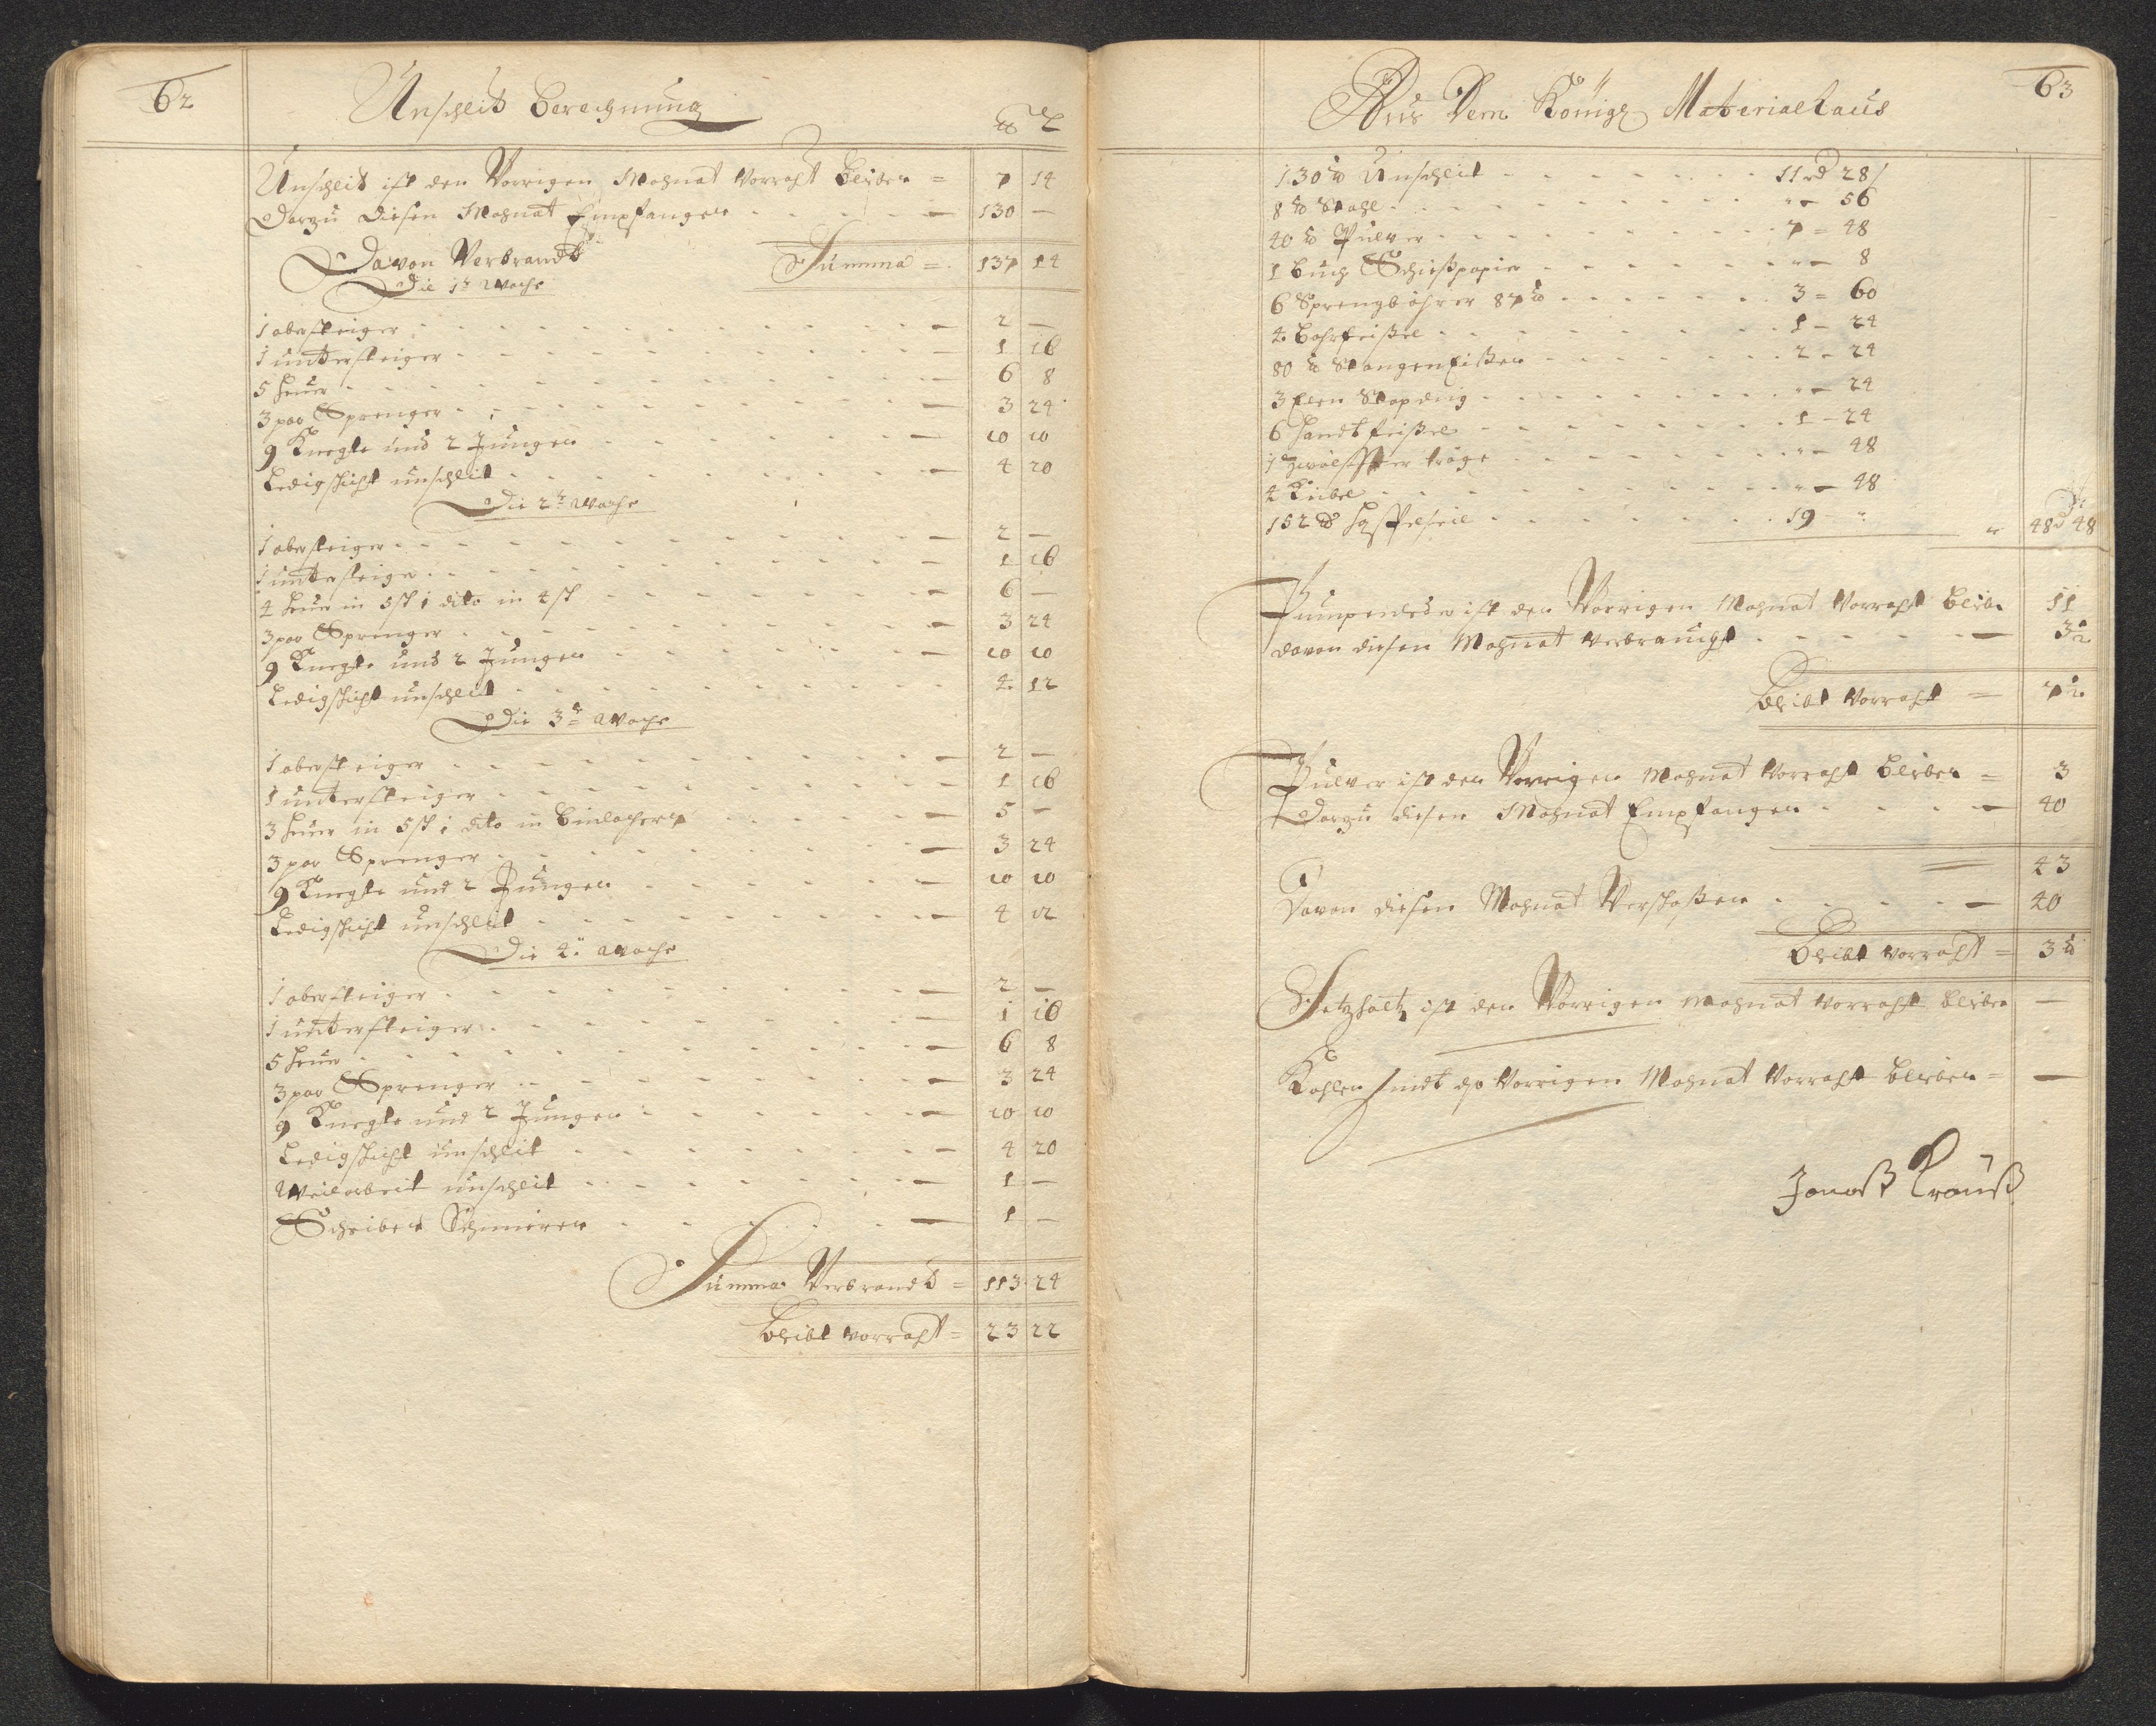 62
Unschleit Berechnung
℔ L
Unschleit ist den Vorrigen Mohnat Vorraht bleiben = 7 14
Darzu diesen Mohnat Empfangen — 130 —
Summa = 137 14
Davon Verbrandt
Die 1te Woche
1 obersteiger — 2 —
1 untersteiger — 1 16
5 heuer — 6 8
3 par Sprenger — 3 24
9 Knegte und 2 Jungen — 10 10
Ledigschicht unschleit — 4 20
Die 2te Woche
1 obersteiger — 2 —
1 untersteiger — 1 16
4 heuer in 5 sch 1 dito in 4 sch — 6 —
3 par Sprenger — 3 24
9 Knegte und 2 Jungen — 10 10
Ledigschicht unschleit — 4 12
Die 3te Woche
1 obersteiger — 2 —
1 untersteiger — 1 16
3 heuer in 5 sch 1 dito in — 5 —
3 par Sprenger — 3 24
9 Knegte und 2 Jungen — 10 10
Ledigschicht unschleit — 4 12
Die 4te Woche
1 obersteiger — 2 —
1 untersteiger — 1 16
5 heuer — 6 8
3 par Sprenger — 3 24
9 Knegte und 2 Jungen — 10 10
Ledigschicht unschleit — 4 20
Weilarbeit unschleit — 1 —
Scheiben Schmieren — 1 —
Summa Verbrandt = 113 24
bleibt vorraht = 23 22
63
Aus Dem Königl Materialhaus
130 ℔ Unschleit 11 rd 28
8 ℔ Stahl " — 56
40 ℔ Pulver 7 = 48
1 buch Schießpapier " — 8
6 Sprengböhrer 87 ℔ 3 = 60
4 bohrfeißel 1 — 24
80 ℔ Stangeneißen 2 — 24
3 Elen " — 24
6 handtfeißel 1 — 24
1 tröge " — 48
4 Kübel " — 48
152 ℔ haspelseil 19 " 48 rd 48
Pumpenleder ist den Vorrigen Mohnat Vorraht bleiben 11
davon diesen Mohnat verbraucht — 3½
bleibt Vorraht = 7½
Pulver ist den Vorrigen Mohnat Vorraht bleiben = 3
Darzu diesen Mohnat Empfangen — 40
43
Davon diesen Mohnat Verschoßen — 40
bleibt vorraht = 3 ℔
Setzholtz ist den Vorrigen mohnat vorraht bleiben —
Kohlen sindt Vorrigen Mohnat Vorraht bleiben = —
Jonaß Krauß